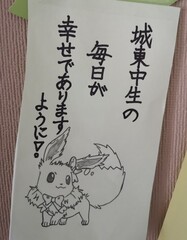 城東中生の
毎日が
幸せであります
ように!